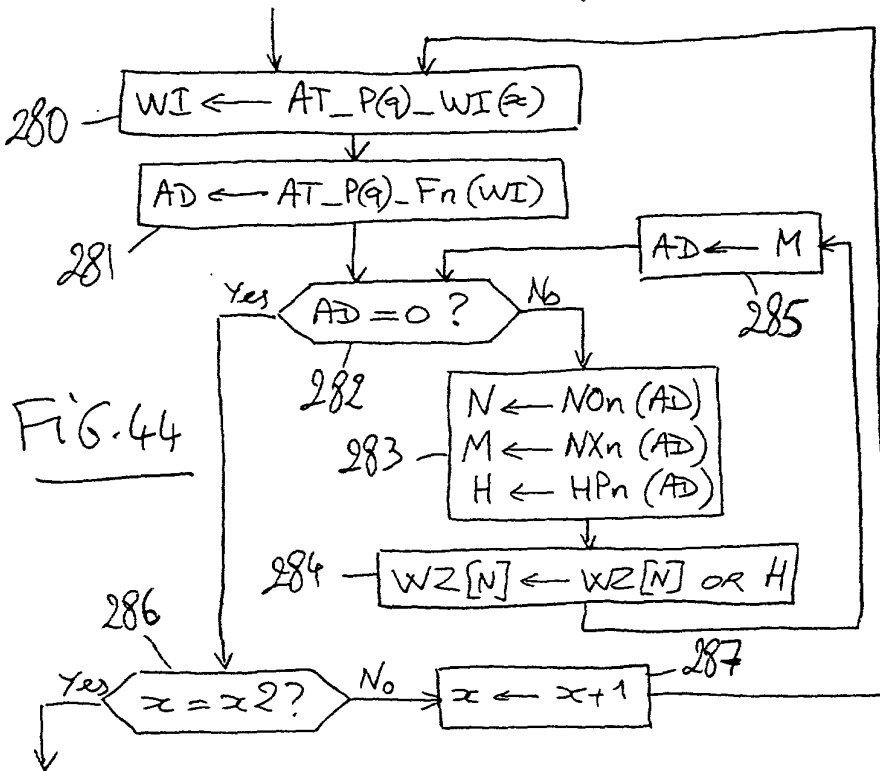 280
WI ← AT_P(q)_WI(x)
AD ← AT_P(q)_Fn(WI)
281
AD ← M
285
Yes
AD = 0 ?
No
282
FiG.44
283
N ← NOn (AD)
M ← NXn (AD)
H ← HPn (AD)
284
WZ[N] ← WZ[N] OR H
286
287
Yes
x = x2?
No
x ← x+1